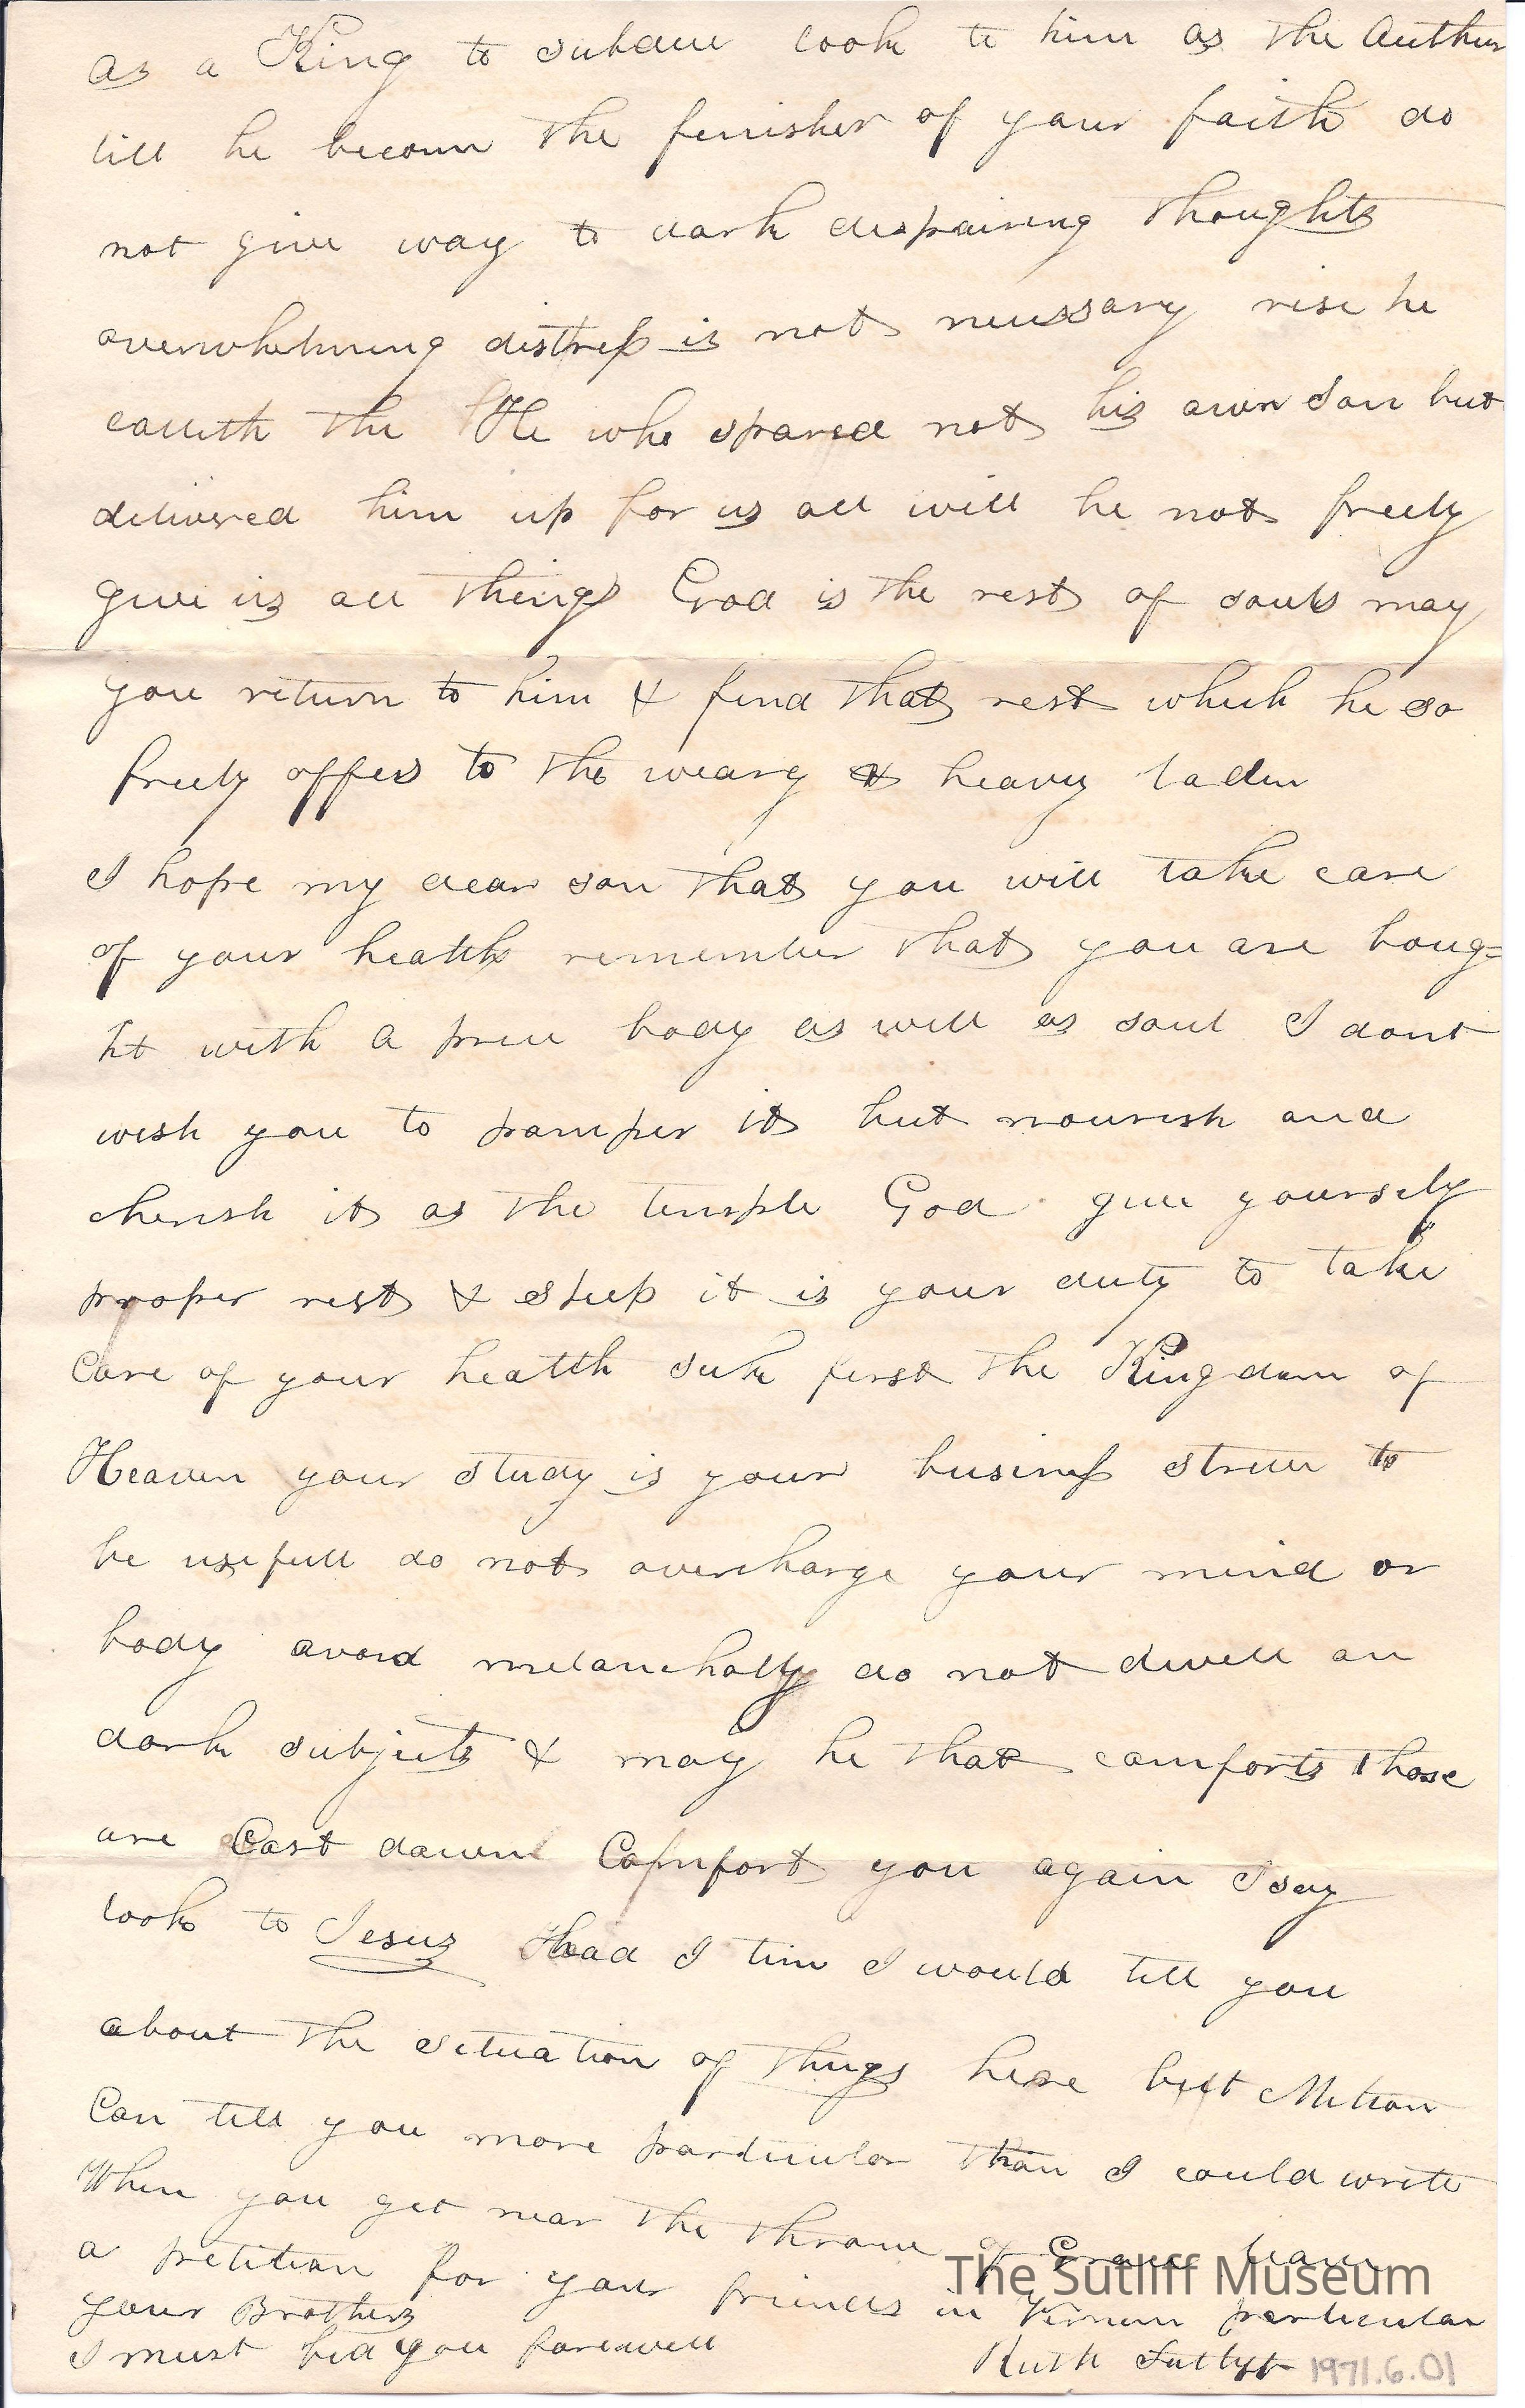 as a King to subdue look to him as the Author
till he become the finisher of your faith do
not give way to dark despairing thoughts
overwhelming distress is not necessary rise he
calleth the He who spared not his own son but
delivered him up for us all will he not freely
give us all things God is the rest of souls may
you return to him & find that rest which he so
freely offers to the weary & heavy laden
I hope my dear son that you will take care
of your health remember that you are boug=
ht with a price body as well as soul I dont
wish you to pamper it but nourish and
cherish it as the temple God give yourself
proper rest & sleep it is your duty to take
Care of your health seek first the Kingdom of
Heaven your study is your business strive to
be usefull do not overcharge your mind or
body avoid melancholly do not dwell on
dark subjects & may he that comforts those
are Cast down Comfort you again I say
look to Jesus Had I time I would tell you
about the situation of things here but Milton
Can tell you more particular than I could write
When you get near the throne of Grace leave
a petition for your friends in Vernon particular
your Brothers
I must bid you farewell Ruth Sutlif
The Sutliff Museum
1971.6.01